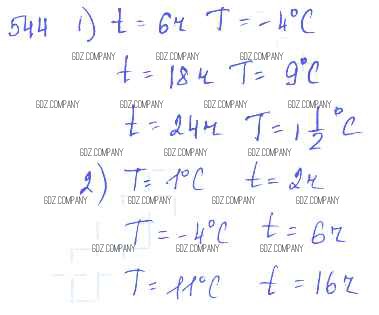 544 1) t = 6ч T = -4°C
GDZ.COMPANY GDZ.COMPANY GDZ.COMPANY
t = 18ч T = 9°C
GDZ.COMPANY GDZ.COMPANY GDZ.COMPANY GDZ.COMPANY
t = 24ч T = 1 1/2 °C
GDZ.COMPANY GDZ.COMPANY GDZ.COMPANY
2) T = 1°C t = 2ч
GDZ.COMPANY GDZ.COMPANY GDZ.COMPANY GDZ.COMPANY
T = -4°C t = 6ч
GDZ.COMPANY GDZ.COMPANY GDZ.COMPANY
T = 11°C t = 16ч